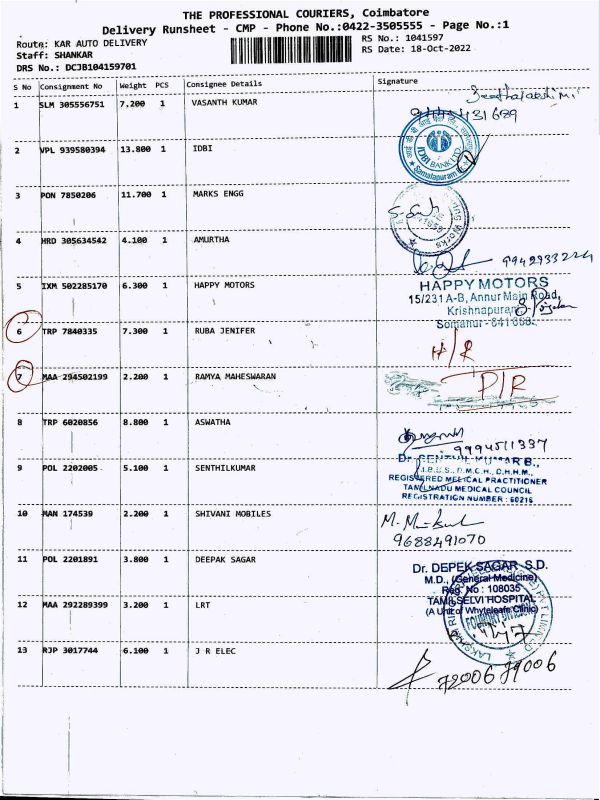 THE PROFESSIONAL COURIERS, Coimbatore
Delivery Runsheet - CMP - Phone No.:0422-3505555 - Page No.:1
Route: KAR AUTO DELIVERY RS No.: 1041597
Staff: SHANKAR RS Date: 18-Oct-2022
DRS No.: DCJB104159701
S No Consignment No Weight PCS Consignee Details Signature
1 SLM 305556751 7.200 1 VASANTH KUMAR
2 VPL 939580394 13.800 1 IDBI
IDBI BANK LTD.
3 PON 7850206 11.700 1 MARKS ENGG
4 HRD 305634542 4.100 1 AMURTHA
9942933224
5 IXM 502285170 6.300 1 HAPPY MOTORS
HAPPY MOTORS
15/231 A-B, Annur Main Road,
Krishnapuram
Somanur - 641 668.
6 TRP 7840335 7.300 1 RUBA JENIFER
7 MAA 294502199 2.200 1 RAMYA MAHESWARAN
D/R
8 TRP 6020856 8.800 1 ASWATHA
9994511337
9 POL 2202005 5.100 1 SENTHILKUMAR
Dr. SENTHIL KUMAR B.,
REGISTERED MEDICAL PRACTITIONER
TAMILNADU MEDICAL COUNCIL
REGISTRATION NUMBER : 60216
10 MAN 174539 2.200 1 SHIVANI MOBILES
9688491070
11 POL 2201891 3.800 1 DEEPAK SAGAR
Dr. DEPEK SAGAR. S.D.
M.D., (General Medicine)
Reg. No : 108035
TAMILSELVI HOSPITAL
(A Unit of Whyteleafe Clinic)
12 MAA 292289399 3.200 1 LRT
FOUNDRY DIVISION
13 RJP 3017744 6.100 1 J R ELEC
7200679006